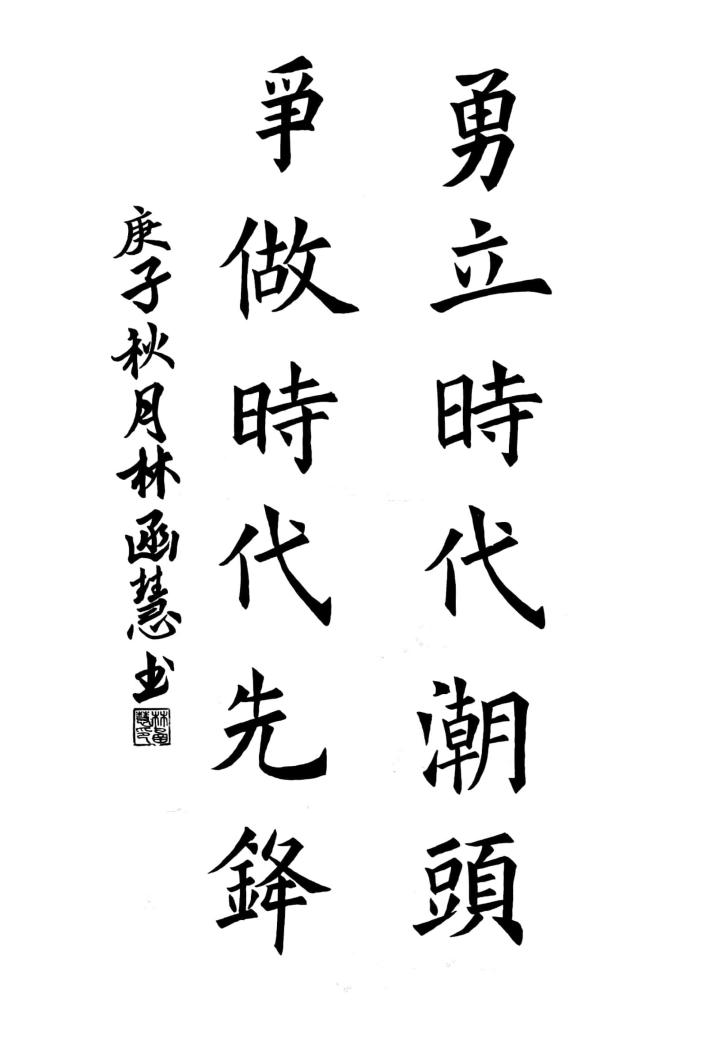 勇立時代潮頭
爭做時代先鋒
庚子秋月林函慧书
林函慧印